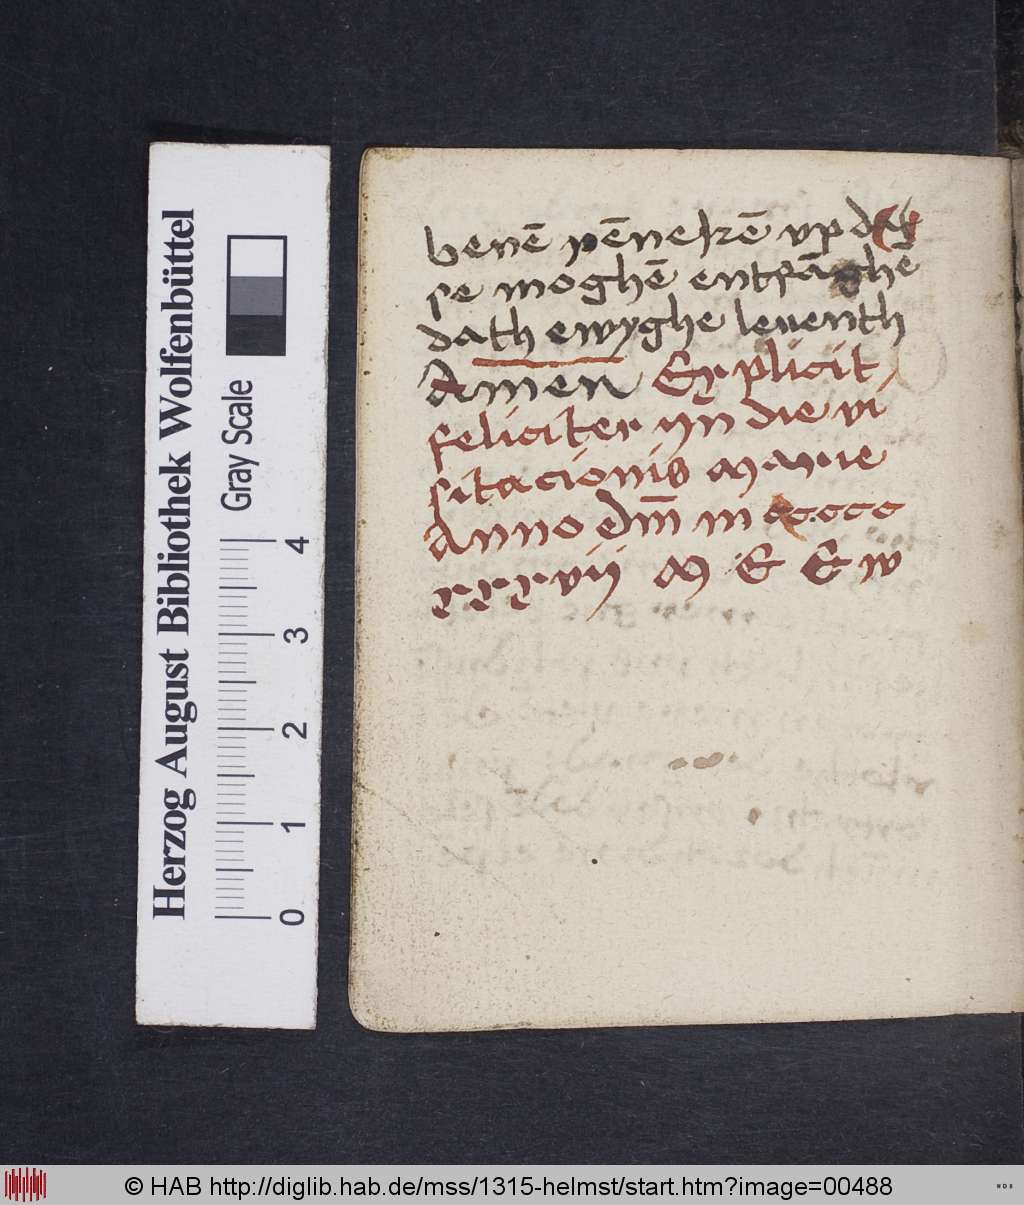 henē pēnekzē vp das
se moghē entfāghe
dath ewyghe leuenth
Amen Explicit
feliciter ijn die vi
sitacionis marie
Anno dm̄ m cccc
xxxvij M E E W
Herzog August Bibliothek Wolfenbüttel
Gray Scale
0 1 2 3 4
© HAB http://diglib.hab.de/mss/1315-helmst/start.htm?image=00488